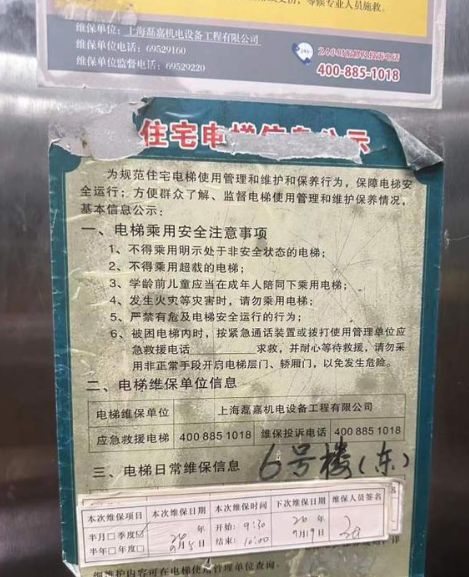 等候专业人员施救。
维保单位:上海磊嘉机电设备工程有限公司
维保单位电话:69529160
维保单位监督电话:69529220
400-885-1018
住宅电梯信息公示
为规范住宅电梯使用管理和维护和保养行为，保障电梯安
全运行；方便群众了解、监督电梯使用管理和维护保养情况，
基本信息公示：
一、电梯乘用安全注意事项
1、不得乘用明示处于非安全状态的电梯；
2、不得乘用超载的电梯；
3、学龄前儿童应当在成年人陪同下乘用电梯；
4、发生火灾等灾害时，请勿乘用电梯；
5、严禁有危及电梯安全运行的行为；
6、被困电梯内时，按紧急通话装置或拨打使用管理单位应
急救援电话 求救，并耐心等待救援，请勿采
用非正常手段开启电梯层门、轿厢门，以免发生危险。
二、电梯维保单位信息
电梯维保单位 上海磊嘉机电设备工程有限公司
应急救援电梯 400 885 1018 维保投诉电话 400 885 1018
三、电梯日常维保信息 6号楼(东)
本次维保项目 本次维保日期 本次维保时间 下次维保日期 维保人员签名
半月□季度☑ 年 开始: 9:30 年
半年□年度□ 9月5日 结束: 10:00 9月19日
细维护内容可在电梯使用管理单位查询。